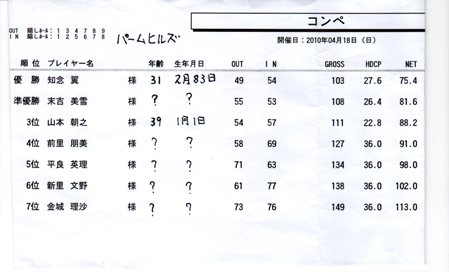 コンペ
OUT 隠しﾎｰﾙ: 1 3 4 7 8 9
IN 隠しﾎｰﾙ: 1 2 5 6 7 8
パームヒルズ
開催日：2010年04月18日（日）
順位 プレイヤー名 年齢 生年月日 OUT IN GROSS HDCP NET
優勝 知念 翼 様 31 2月83日 49 54 103 27.6 75.4
準優勝 末吉 美雪 様 ? ? 55 53 108 26.4 81.6
3位 山本 朝之 様 39 1月1日 54 57 111 22.8 88.2
4位 前里 朋美 様 ? ? 58 69 127 36.0 91.0
5位 平良 英理 様 ? ? 71 63 134 36.0 98.0
6位 新里 文野 様 ? ? 61 77 138 36.0 102.0
7位 金城 理沙 様 ? ? 73 76 149 36.0 113.0